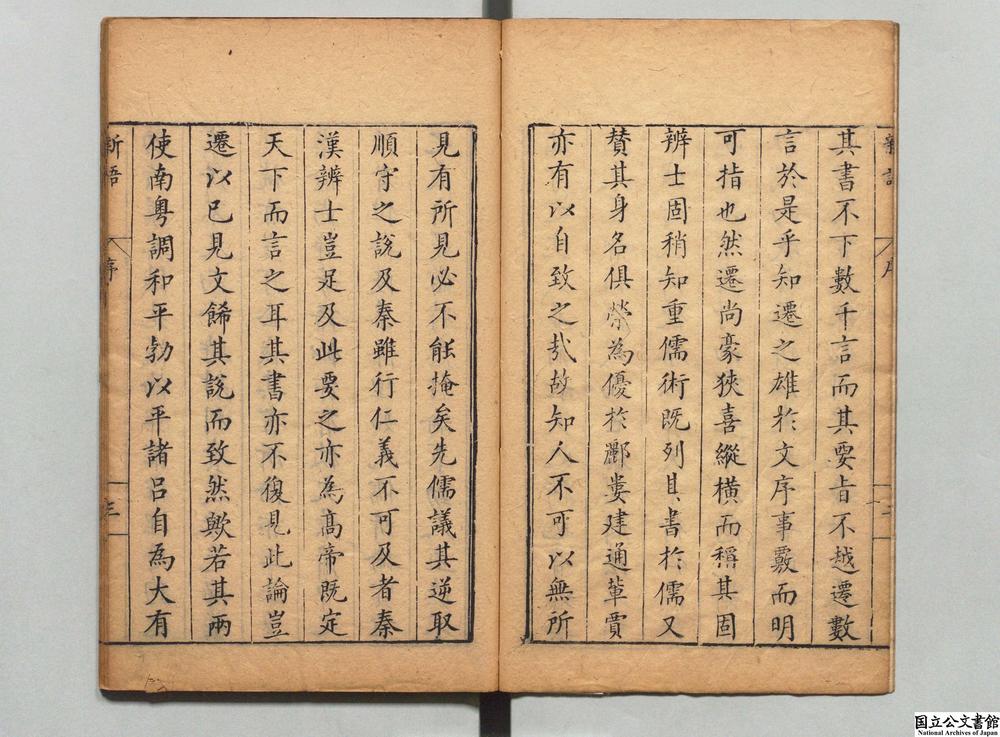 其書不下數千言而其要旨不越遷數
言於是乎知遷之雄於文序事覈而明
可指也然遷尚豪狹喜縱橫而稱其固
辨士固稍知重儒術既列其書於儒又
賛其身名俱榮為優於酈婁建通軰賈
亦有以自致之㢤故知人不可以無所
見有所見必不能掩矣先儒議其逆取
順守之說及秦雖行仁義不可及者秦
漢辨士豈足及此要之亦為高帝既定
天下而言之耳其書亦不復見此論豈
遷以已見文餙其說而致然歟若其兩
使南粤調和平勃以平諸呂自為大有
新語
序
三
国立公文書館
National Archives of Japan